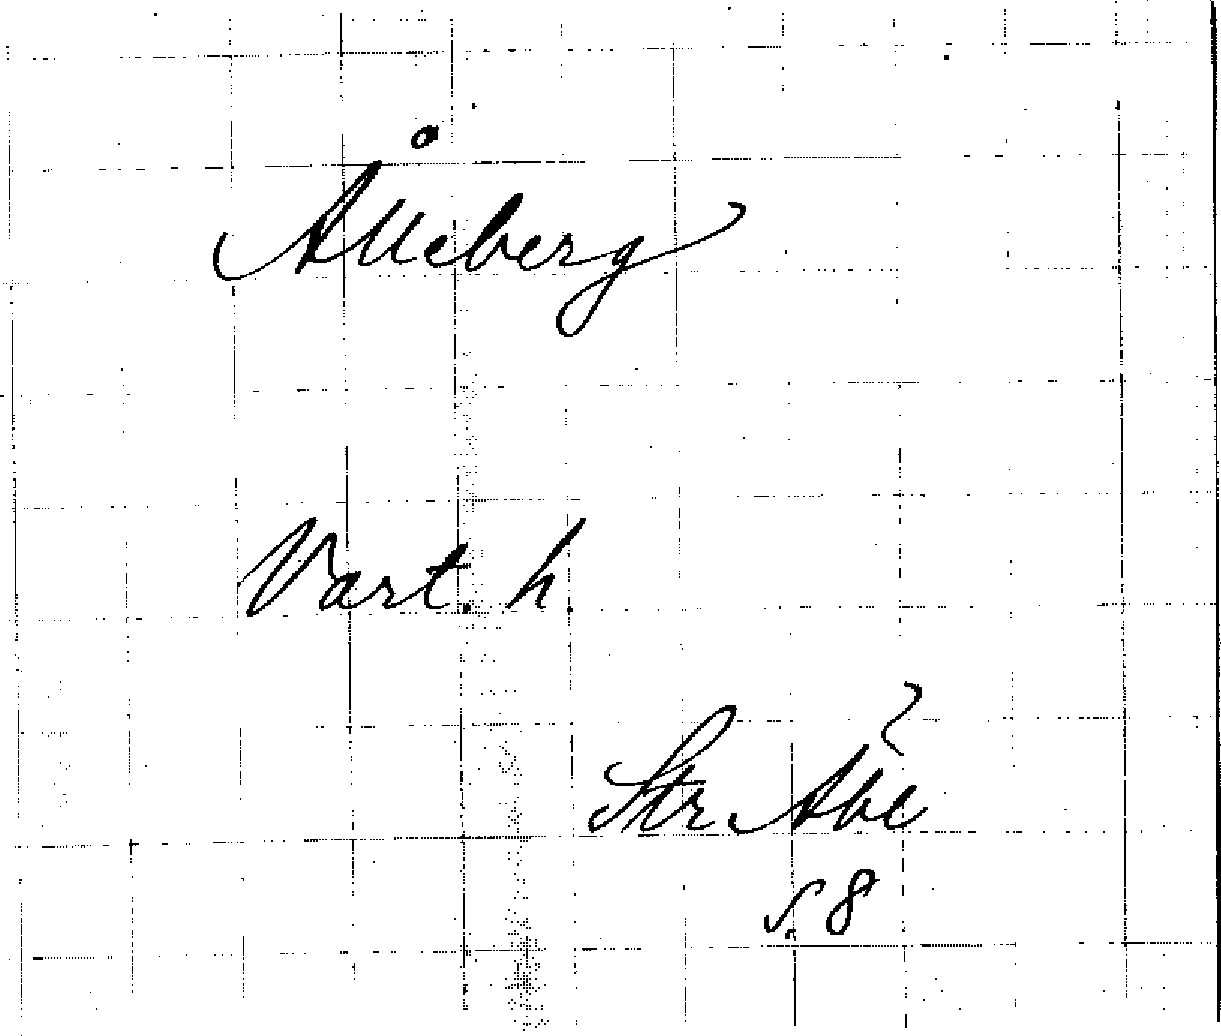 Ålleberg
Vart. h.
Str Åbe
s. 8